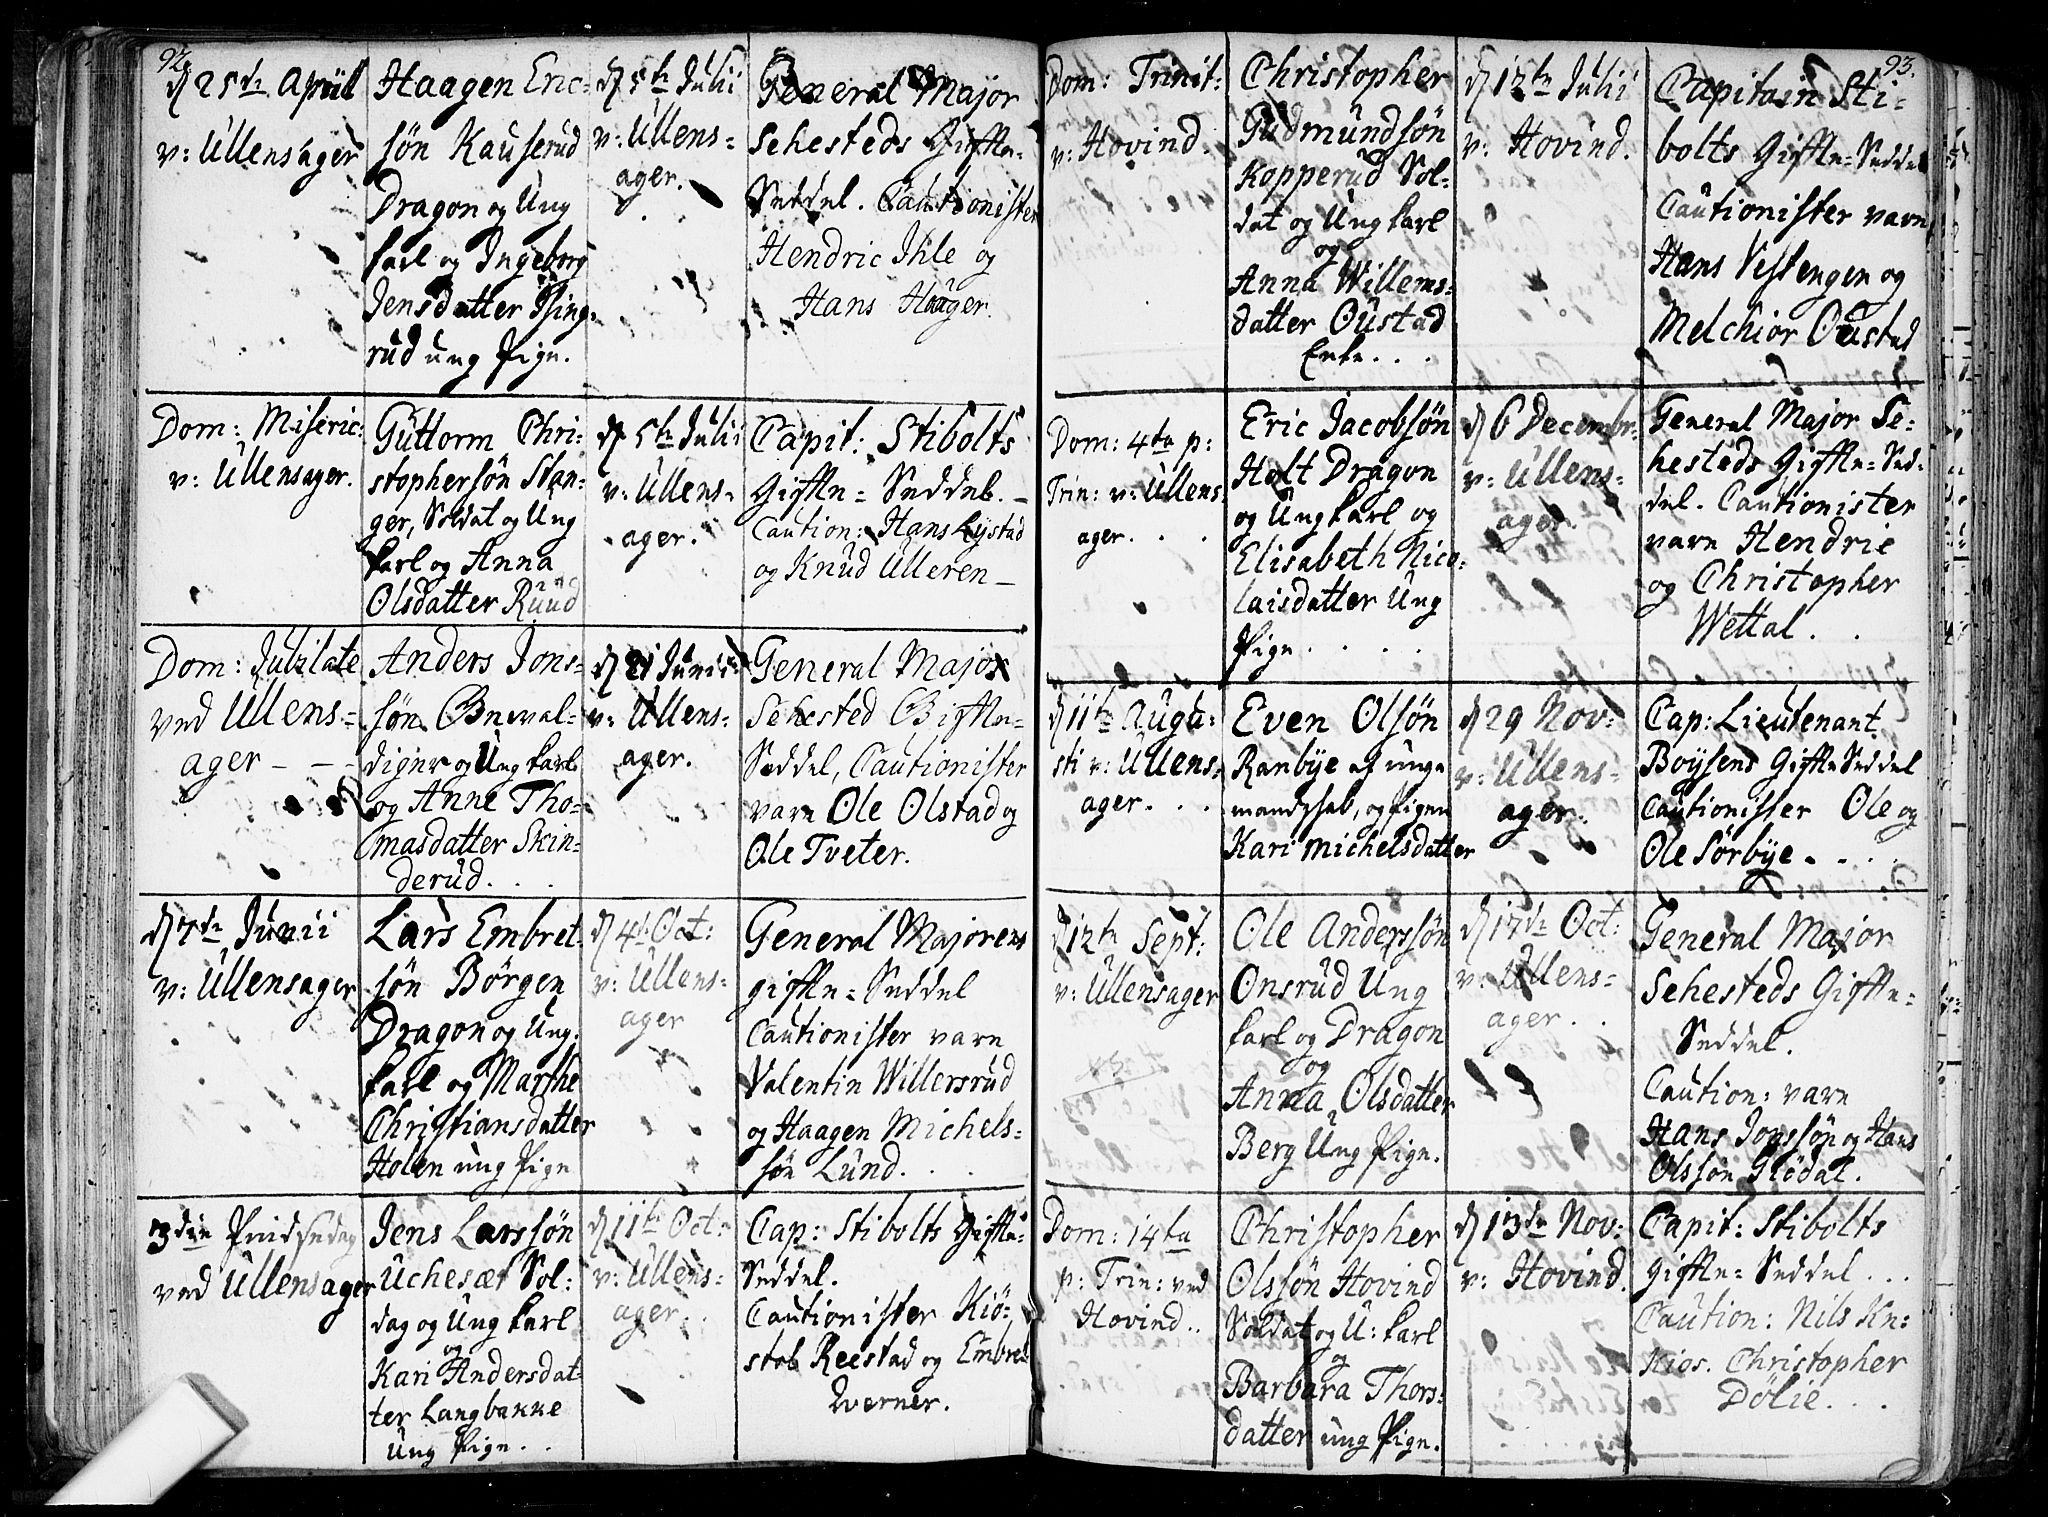 92.
d 25de Apriil
v: Ullensager
Haagen Eric-
søn Kauserud
Dragon og Ung
karl og Ingeborg
Jensdatter
rud ung Pige.
d 5te Julii
v: Ullens-
ager.
General Major
Sehesteds Gifte-
Seddel. Cautionister
Hendric Ihle og
Hans Haager.
Dom: Miseric:
v: Ullensager.
Guttorm Chri-
stophersøn Stan-
ger, Soldat og Ung
karl og Anna
Olsdatter Ruud
d 5te Julii
v: Ullens-
ager.
Capit: Stibolts
Gifte-Seddel. –
Caution: Hans Lystad
og Knud Ulleren –
Dom: Jubilate
ved Ullens-
ager – – –
Anders Jons-
søn
og Ung karl
og Anne Tho-
masdatter Skin-
derud. . .
d 21 Junii
v: Ullens-
ager.
General Major
Sehested Gifte-
Seddel, Cautionister
vare Ole Olstad og
Ole Tveter.
d 7de Junii
v: Ullensager
Lars Embret-
søn Börgen
Dragon og Ung-
karl og Marthe
Christiansdatter
Holen ung Pige
d 4de Oct:
v: Ullens-
ager
General Majorens
gifte-Seddel
Cautionister vare
Valentin Willersrud
og Haagen Michels-
søn Lund. . .
3die Pindsedag
ved Ullensager
Jens Larssøn
Uchesæt Sol-
dag og Ung karl
og
Kari Andersdat-
ter Langbakke
Ung Pige. . .
d 11te Oct:
v: Ullens-
ager. .
Cap: Stibolts Gifte-
Seddel.
Cautionister Kiö-
stol Reestad og Embret
Werner.
93.
Dom: Trinit:
v: Hovind.
Christopher
Gudmundsøn
Kopperud Sol-
dat og Ung karl
og
Anna Willems-
datter Oustad
Enke. . .
d 12te Julii
v: Hovind.
Capitain Sti-
bolts Gifte-Seddel
Cautionister vare
Hans Vestengen og
Melchior Oustad
Dom: 4ta p:
Trin: v: Ullens-
ager. . .
Eric Jacobsøn
Holt Dragon
og Ung karl og
Elisabeth Nico-
laisdatter Ung
Pige. . . .
d 6 Decembr:
v: Ullens-
ager.
General Major Se-
hesteds Gifte-Sed-
del. Cautionister
vare Hendric
og Christopher
Wettal. .
d 11te Augu-
sti v: Ullens-
ager. . .
Even Olsøn
Ranbye af unge
mandskab, og Pigen
Kari Michelsdatter
d 29 Nov:
v: Ullens-
ager.
Cap: Lieutenant
Boysens Gifte Seddel
Cautionister Ole og
Ole Sørbye. . . .
d 12te Sept:
v: Ullensager
Ole Anderssøn
Onsrud Ung
karl og Dragon
og
Anna Olsdatter
Berg Ung Pige.
d 17de Oct:
v: Ullens-
ager. .
General Major
Sehesteds Gifte-
Seddel.
Caution: vare
Hans Jonssøn og Hans
Olssøn Glödal.
Dom: 14ta
p: Trin: ved
Hovind. .
Christopher
Olssøn Hovind
Soldat og U: karl
og
Barbara Thors-
datter ung Pige.
d 13de Nov:
v: Hovind.
Capit: Stibolts
gifte-Seddel . . .
Caution: Nils
Christopher
Dölie. . .